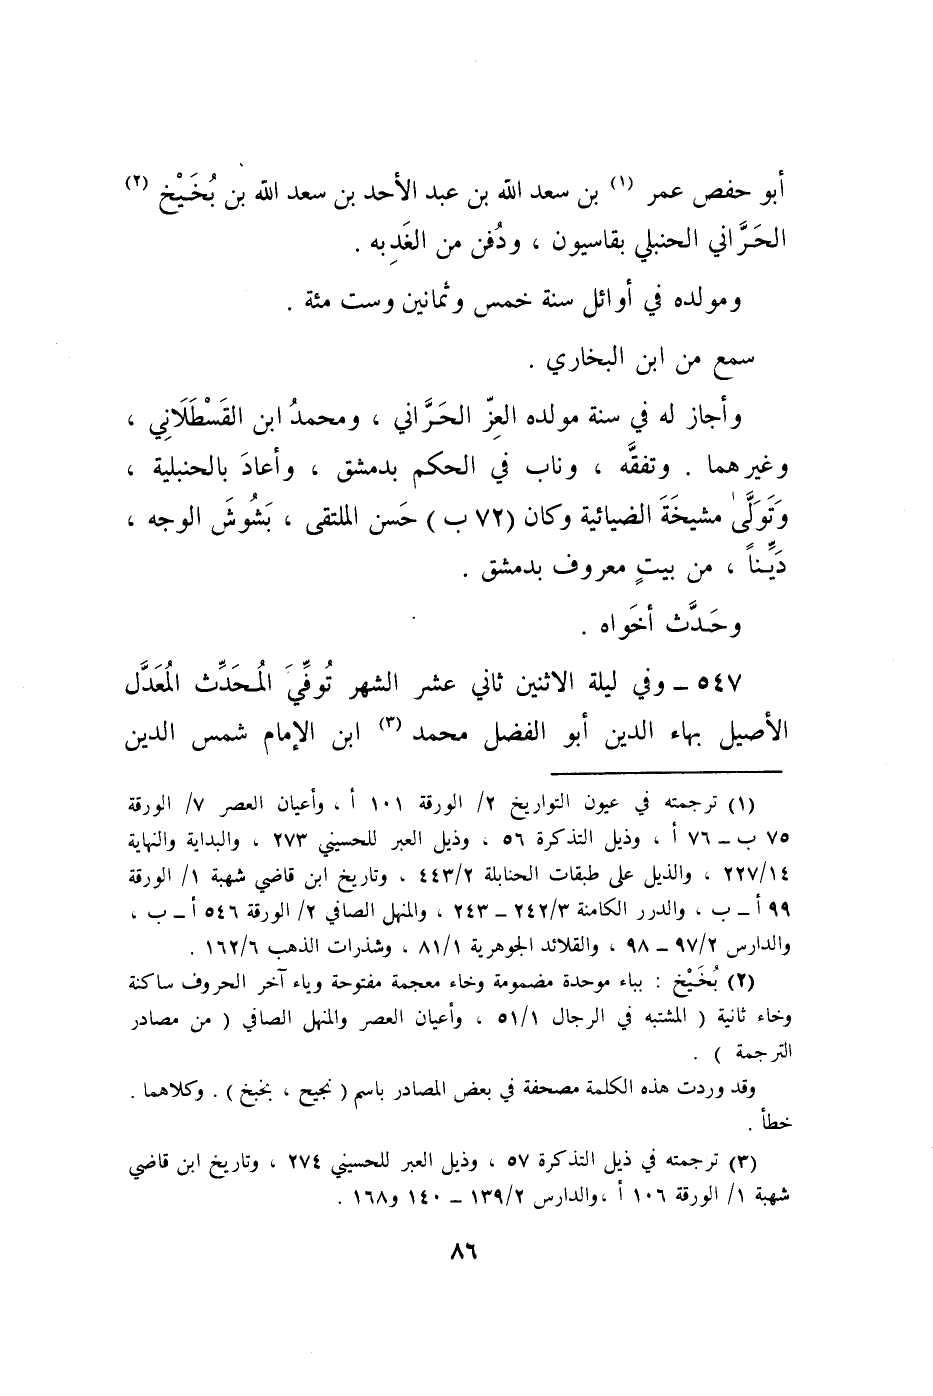 أبو حفص عمر (١) بن سعد الله بن عبد الأحد بن سعد الله بن بُخَيْخ (٢)
الحَرَّاني الحنبلي بقاسيون ، ودُفن من الغَدِ به .
ومولده في أوائل سنة خمس وثمانين وست مئة .
سمع من ابن البخاري .
وأجاز له في سنة مولده العِزّ الحَرَّاني ، ومحمدُ ابن القَسْطَلَانِي ،
وغيرهما . وتفقَّه ، وناب في الحكم بدمشق ، وأعادَ بالحنبلية ،
وَتَوَلَّىٰ مشيخَةَ الضيائية وكان (٧٢ ب) حَسن الملتقى ، بَشُوشَ الوجه ،
دَيِّناً ، من بيتٍ معروف بدمشق .
وحَدَّث أخَواه .
٥٤٧ ـ وفي ليلة الاثنين ثاني عشر الشهر تُوفِّيَ المُحَدِّث المُعَدَّل
الأصيل بهاء الدين أبو الفضل محمد (٣) ابن الإمام شمس الدين
(١) ترجمته في عيون التواريخ ٢/ الورقة ١٠١ أ ، وأعيان العصر ٧/ الورقة
٧٥ ب ـ ٧٦ أ ، وذيل التذكرة ٥٦ ، وذيل العبر للحسيني ٢٧٣ ، والبداية والنهاية
٢٢٧/١٤ ، والذيل على طبقات الحنابلة ٤٤٣/٢ ، وتاريخ ابن قاضي شهبة ١/ الورقة
٩٩ أ ـ ب ، والدرر الكامنة ٢٤٢/٣ ـ ٢٤٣ ، والمنهل الصافي ٢/ الورقة ٥٤٦ أ ـ ب ،
والدارس ٩٧/٢ ـ ٩٨ ، والقلائد الجوهرية ٨١/١ ، وشذرات الذهب ١٦٢/٦ .
(٢) بُخَيْخ : بباء موحدة مضمومة وخاء معجمة مفتوحة وياء آخر الحروف ساكنة
وخاء ثانية ( المشتبه في الرجال ٥١/١ ، وأعيان العصر والمنهل الصافي ( من مصادر
الترجمة ) .
وقد وردت هذه الكلمة مصحفة في بعض المصادر باسم ( نجيح ، بخبخ ) . وكلاهما .
خطأ .
(٣) ترجمته في ذيل التذكرة ٥٧ ، وذيل العبر للحسيني ٢٧٤ ، وتاريخ ابن قاضي
شهبة ١/ الورقة ١٠٦ أ ،والدارس ١٣٩/٢ ـ ١٤٠ و١٦٨ .
٨٦